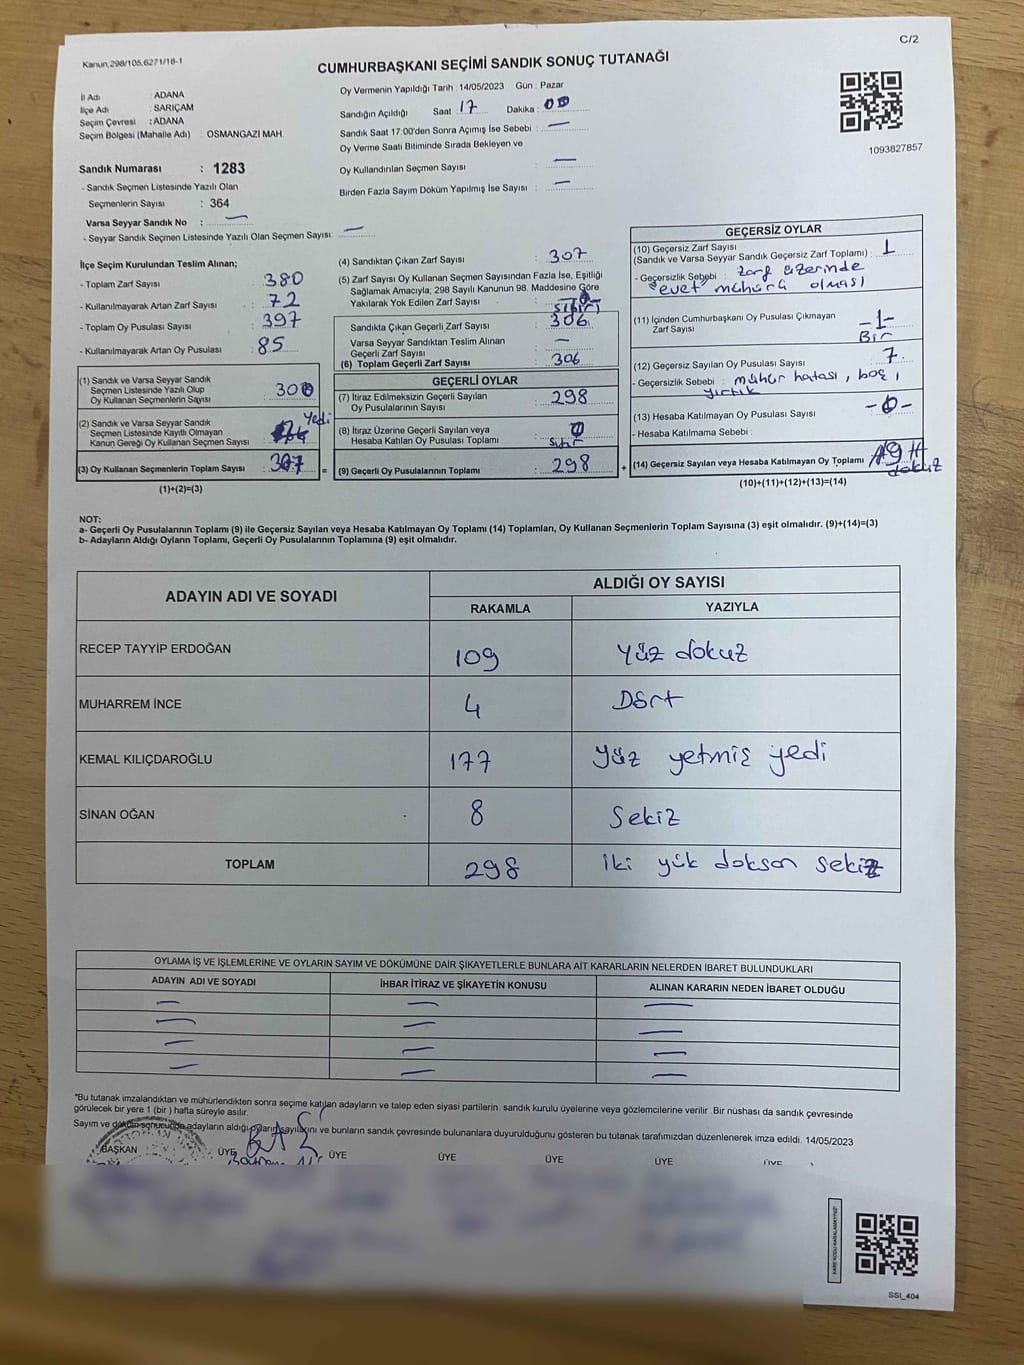 C/2
Kanun,298/105,6271/18-1
CUMHURBAŞKANI SEÇİMİ SANDIK SONUÇ TUTANAĞI
İl Adı : ADANA
İlçe Adı : SARIÇAM
Seçim Çevresi : ADANA
Seçim Bölgesi (Mahalle Adı) : OSMANGAZİ MAH.
Oy Vermenin Yapıldığı Tarih : 14/05/2023 Gün : Pazar
Sandığın Açıldığı Saat : 17 Dakika : 00
Sandık Saat 17:00'den Sonra Açımış İse Sebebi : —
Oy Verme Saati Bitiminde Sırada Bekleyen ve
Oy Kullandırılan Seçmen Sayısı : —
Birden Fazla Sayım Döküm Yapılmış İse Sayısı : —
1093827857
Sandık Numarası : 1283
- Sandık Seçmen Listesinde Yazılı Olan
Seçmenlerin Sayısı : 364
Varsa Seyyar Sandık No : —
- Seyyar Sandık Seçmen Listesinde Yazılı Olan Seçmen Sayısı: —
İlçe Seçim Kurulundan Teslim Alınan;
- Toplam Zarf Sayısı : 380
- Kullanılmayarak Artan Zarf Sayısı : 72
- Toplam Oy Pusulası Sayısı : 397
- Kullanılmayarak Artan Oy Pusulası : 85
(1) Sandık ve Varsa Seyyar Sandık
Seçmen Listesinde Yazılı Olup
Oy Kullanan Seçmenlerin Sayısı : 300
(2) Sandık ve Varsa Seyyar Sandık
Seçmen Listesinde Kayıtlı Olmayan
Kanun Gereği Oy Kullanan Seçmen Sayısı : Yedi
(3) Oy Kullanan Seçmenlerin Toplam Sayısı : 307
(1)+(2)=(3)
(4) Sandıktan Çıkan Zarf Sayısı : 307
(5) Zarf Sayısı Oy Kullanan Seçmen Sayısından Fazla İse, Eşitliği
Sağlamak Amacıyla; 298 Sayılı Kanunun 98. Maddesine Göre
Yakılarak Yok Edilen Zarf Sayısı : sıfır
Sandıkta Çıkan Geçerli Zarf Sayısı : 306
Varsa Seyyar Sandıktan Teslim Alınan
Geçerli Zarf Sayısı : —
(6) Toplam Geçerli Zarf Sayısı : 306
GEÇERLİ OYLAR
(7) İtiraz Edilmeksizin Geçerli Sayılan
Oy Pusulalarının Sayısı : 298
(8) İtiraz Üzerine Geçerli Sayılan veya
Hesaba Katılan Oy Pusulası Toplamı : 0 sıfır
= (9) Geçerli Oy Pusulalarının Toplamı : 298
GEÇERSİZ OYLAR
(10) Geçersiz Zarf Sayısı
(Sandık ve Varsa Seyyar Sandık Geçersiz Zarf Toplamı) : 1
- Geçersizlik Sebebi : zarf üzerinde
"evet" mührü olması
(11) İçinden Cumhurbaşkanı Oy Pusulası Çıkmayan
Zarf Sayısı : -1- Bir
(12) Geçersiz Sayılan Oy Pusulası Sayısı : 7.
- Geçersizlik Sebebi : mühür hatası, boş,
yırtık
(13) Hesaba Katılmayan Oy Pusulası Sayısı : -0-
- Hesaba Katılmama Sebebi :
+ (14) Geçersiz Sayılan veya Hesaba Katılmayan Oy Toplamı : 9 dokuz
(10)+(11)+(12)+(13)=(14)
NOT:
a- Geçerli Oy Pusulalarının Toplamı (9) ile Geçersiz Sayılan veya Hesaba Katılmayan Oy Toplamı (14) Toplamları, Oy Kullanan Seçmenlerin Toplam Sayısına (3) eşit olmalıdır. (9)+(14)=(3)
b- Adayların Aldığı Oyların Toplamı, Geçerli Oy Pusulalarının Toplamına (9) eşit olmalıdır.
ADAYIN ADI VE SOYADI
ALDIĞI OY SAYISI
RAKAMLA YAZIYLA
RECEP TAYYİP ERDOĞAN 109 Yüz dokuz
MUHARREM İNCE 4 Dört
KEMAL KILIÇDAROĞLU 177 Yüz yetmiş yedi
SİNAN OĞAN 8 Sekiz
TOPLAM 298 iki yük dokson sekiz
OYLAMA İŞ VE İŞLEMLERİNE VE OYLARIN SAYIM VE DÖKÜMÜNE DAİR ŞİKAYETLERLE BUNLARA AİT KARARLARIN NELERDEN İBARET BULUNDUKLARI
ADAYIN ADI VE SOYADI İHBAR İTİRAZ VE ŞİKAYETİN KONUSU ALINAN KARARIN NEDEN İBARET OLDUĞU
— — —
— — —
— — —
— — —
*Bu tutanak imzalandıktan ve mühürlendikten sonra seçime katılan adayların ve talep eden siyasi partilerin sandık kurulu üyelerine veya gözlemcilerine verilir .Bir nüshası da sandık çevresinde
görülecek bir yere 1 (bir ) hafta süreyle asılır.
Sayım ve döküm sonucunda adayların aldığı oyların sayılarını ve bunların sandık çevresinde bulunanlara duyurulduğunu gösteren bu tutanak tarafımızdan düzenlenerek imza edildi. 14/05/2023
BAŞKAN ÜYE ÜYE ÜYE ÜYE ÜYE ÜYE
KARE KODU KARALAMAYINIZ!
SSI_404